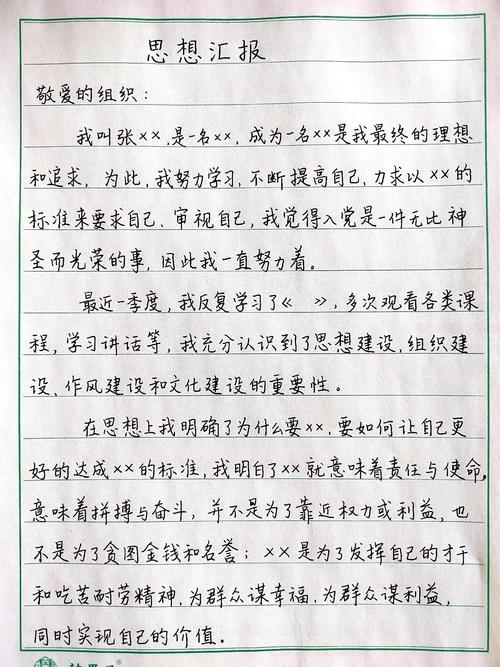 思想汇报
敬爱的组织：
我叫张××，是一名××，成为一名××是我最终的理想
和追求，为此，我努力学习，不断提高自己，力求以××的
标准来要求自己、审视自己，我觉得入党是一件无比神
圣而光荣的事，因此我一直努力着。
最近一季度，我反复学习了《 》，多次观看各类课
程，学习讲话等，我充分认识到了思想建设、组织建
设、作风建设和文化建设的重要性。
在思想上我明确了为什么要××，要如何让自己更
好的达成××的标准，我明白了××就意味着责任与使命，
意味着拼搏与奋斗，并不是为了靠近权力或利益，也
不是为了贪图金钱和名誉；××是为了发挥自己的才干
和吃苦耐劳精神，为群众谋幸福，为群众谋利益，
同时实现自己的价值。